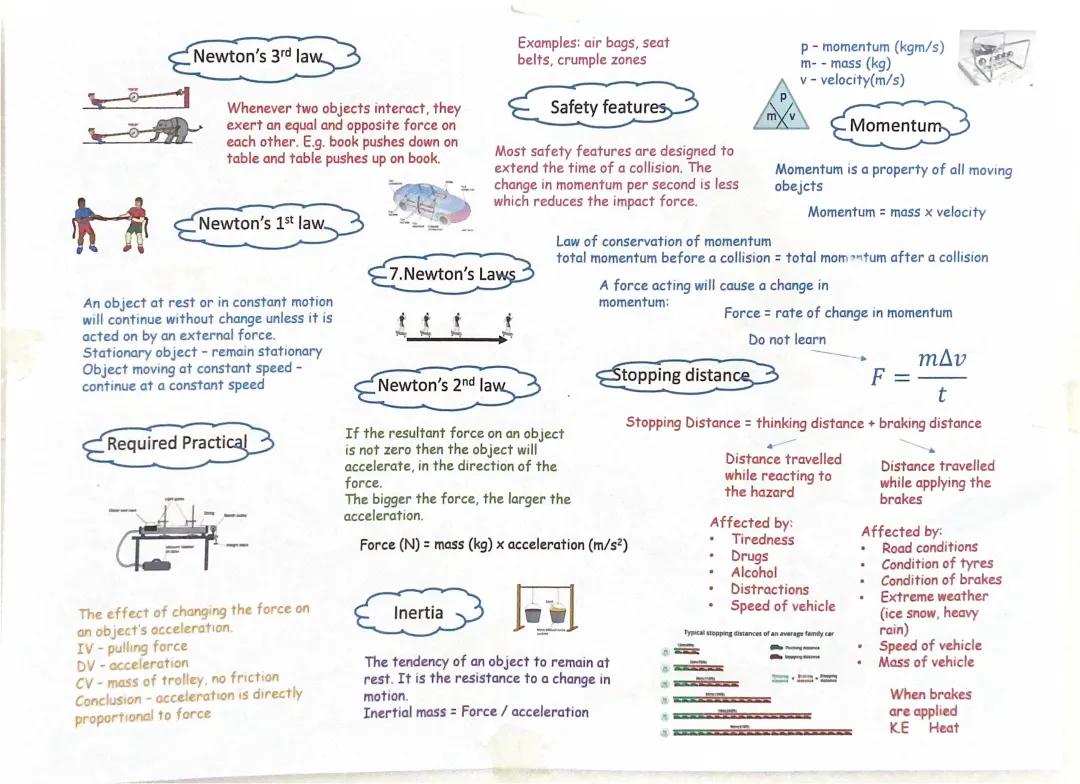 Newton's 3rd law
Whenever two objects interact, they
exert an equal and opposite force on
each other. E.g. book pushes down on
table and table pushes up on book.
Examples: air bags, seat
belts, crumple zones
Safety features
Most safety features are designed to
extend the time of a collision. The
change in momentum per second is less
which reduces the impact force.
p - momentum (kgm/s)
m- - mass (kg)
v - velocity(m/s)
p
m v
Momentum
Momentum is a property of all moving
obejcts
Momentum = mass x velocity
Law of conservation of momentum
total momentum before a collision = total momentum after a collision
A force acting will cause a change in
momentum:
Force = rate of change in momentum
Do not learn
F = mΔv / t
Newton's 1st law
An object at rest or in constant motion
will continue without change unless it is
acted on by an external force.
Stationary object - remain stationary
Object moving at constant speed -
continue at a constant speed
7.Newton's Laws
Newton's 2nd law
If the resultant force on an object
is not zero then the object will
accelerate, in the direction of the
force.
The bigger the force, the larger the
acceleration.
Force (N) = mass (kg) x acceleration (m/s²)
Stopping distance
Stopping Distance = thinking distance + braking distance
Distance travelled
while reacting to
the hazard
Affected by:
• Tiredness
• Drugs
• Alcohol
• Distractions
• Speed of vehicle
Distance travelled
while applying the
brakes
Affected by:
• Road conditions
• Condition of tyres
• Condition of brakes
• Extreme weather
(ice snow, heavy
rain)
• Speed of vehicle
• Mass of vehicle
When brakes
are applied
K.E Heat
Required Practical
Light gates
String
The effect of changing the force on
an object's acceleration.
IV - pulling force
DV - acceleration
CV - mass of trolley, no friction
Conclusion - acceleration is directly
proportional to force
Inertia
The tendency of an object to remain at
rest. It is the resistance to a change in
motion.
Inertial mass = Force / acceleration
Typical stopping distances of an average family car
Thinking distance
Stopping distance